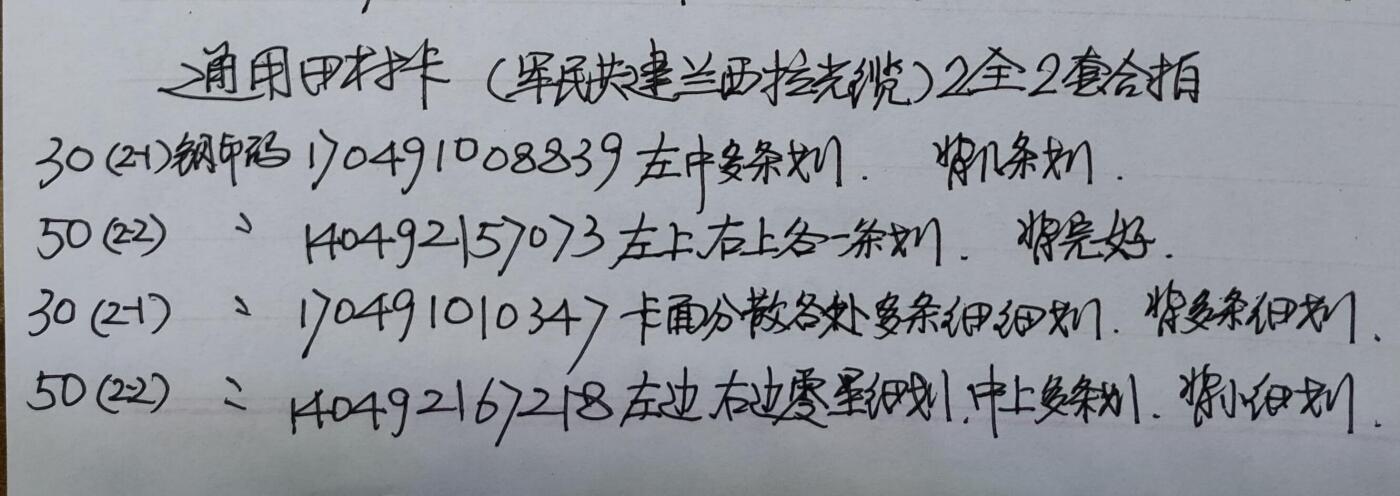 通用田村卡（军民共建兰西拉光缆）2全2套合拍
30(2-1)钢印码 170491008839 左中多条划. 背几条划.
50(2-2) 〃 140492157073 左上右上各一条划. 背完好.
30(2-1) 〃 170491010347 卡面分散各处多条细细划. 背多条细划.
50(2-2) 〃 140492167218 左边右边零星细划.中上多条划. 背小细划.